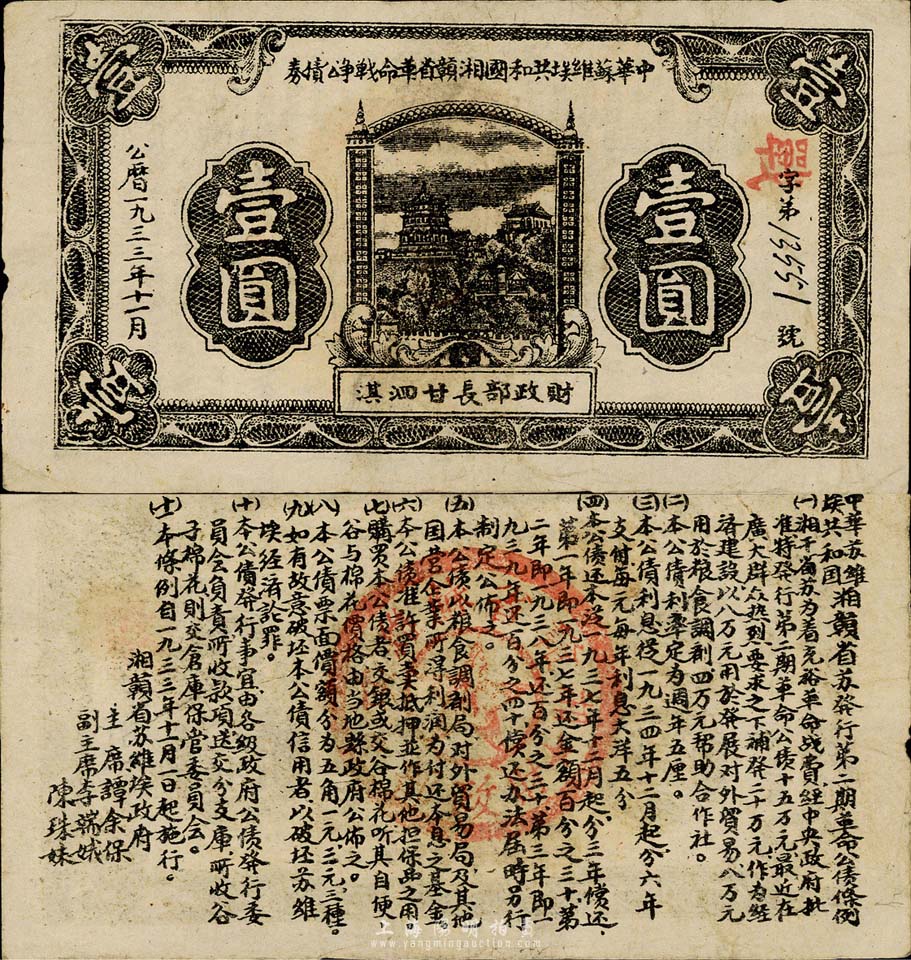 中華蘇維埃共和國湘贛省革命戰爭公債券
壹
壹
壹圓
壹圓
字第15591號
公曆一九三三年十一月
財政部長甘泗淇
壹
壹
中華苏維埃共和国湘贛省苏發行第二期革命公債條例
(一)湘贛省苏为着充裕革命战費経中央政府批
准特發行第二期革命公債十五万元最近在
廣大群众热烈要求之下補發二十万元作為経
済建設以八万元用於發展对外貿易八万元
用於粮食調劑四万元帮助合作社。
(二)本公債利率定为週年五厘。
(三)本公債利息從一九三四年十二月起分六年
支付每元每年利息大洋五分
(四)本公債还本從一九三七年十二月起分三年償还
第一年即一九三七年还金額百分之三十第
二年即一九三八年还百分之三十第三年即一
九三九年还百分之四十償还办法屆時另行
制定公佈之。
(五)本公債以粮食調劑局对外貿易局及其他
国营企業所得利润为付还本息之基金。
(六)本公債准許買卖抵押並作其他担保品之用。
(七)購買本公債者交銀或交谷棉花听其自便
谷与棉花價格由当地縣政府公佈之。
(八)本公債票面價額分为五角一元二元三種。
(九)如有故意破坯本公債信用者以破坯苏維
埃経済論罪。
(十)本公債發行事宜由各級政府公債發行委
員会負責所收款項送交分支庫所收谷
子棉花則交倉庫保管委員会。
(十一)本條例自一九三三年十一月一日起施行。
湘贛省苏維埃政府
主席譚余保
副主席李端娥
陳珠妹
上海陽明拍賣
www.yangmingauction.com